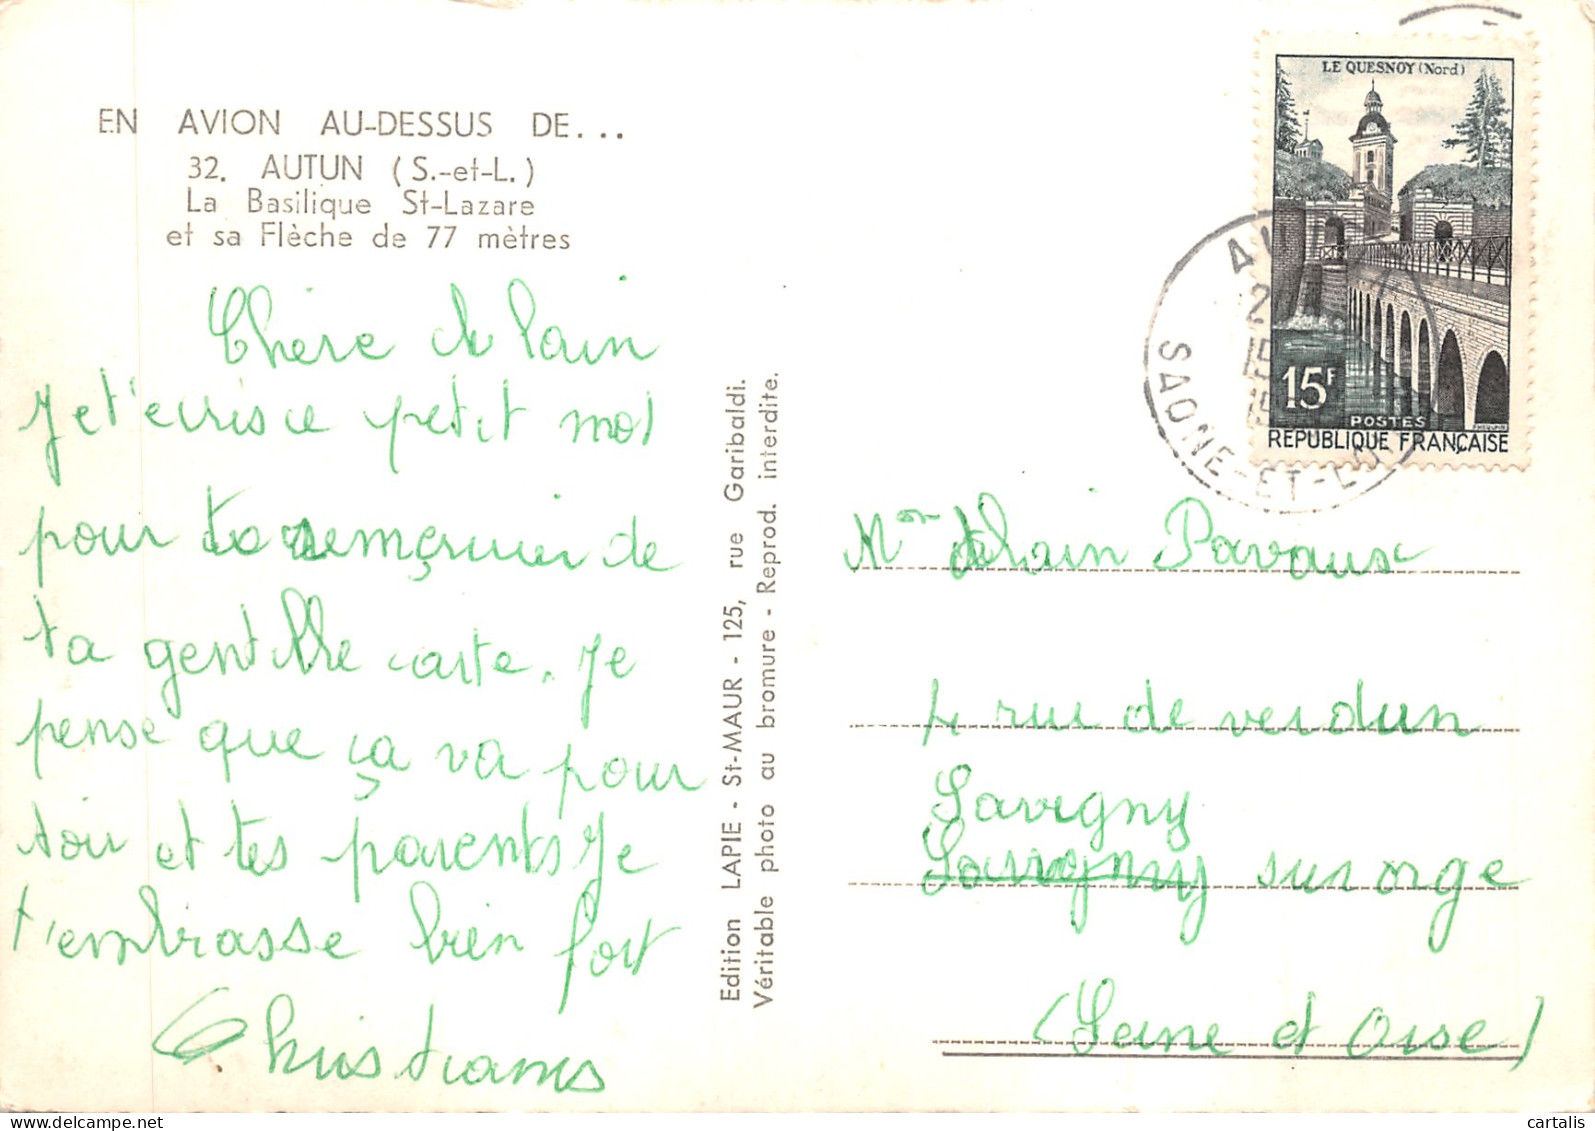 EN AVION AU-DESSUS DE...
32. AUTUN (S.-et-L.)
La Basilique St-Lazare
et sa Flèche de 77 mètres
Chère Alain
Je t'ecris ce petit mot
pour te remercier de
ta gentille carte. Je
pense que ça va pour
toi et tes parents Je
t'embrasse bien fort
Christiane
Edition LAPIE - St-MAUR - 125, rue Garibaldi.
Véritable photo au bromure - Reprod. interdite.
LE QUESNOY (Nord)
15F
POSTES
REPUBLIQUE FRANÇAISE
AUTUN
SAONE-ET-LOIRE
Mr Alain Pavaux
4 rue de verdun
Savigny
Savigny sur orge
(Seine et Oise)
cartalis
www.delcampe.net